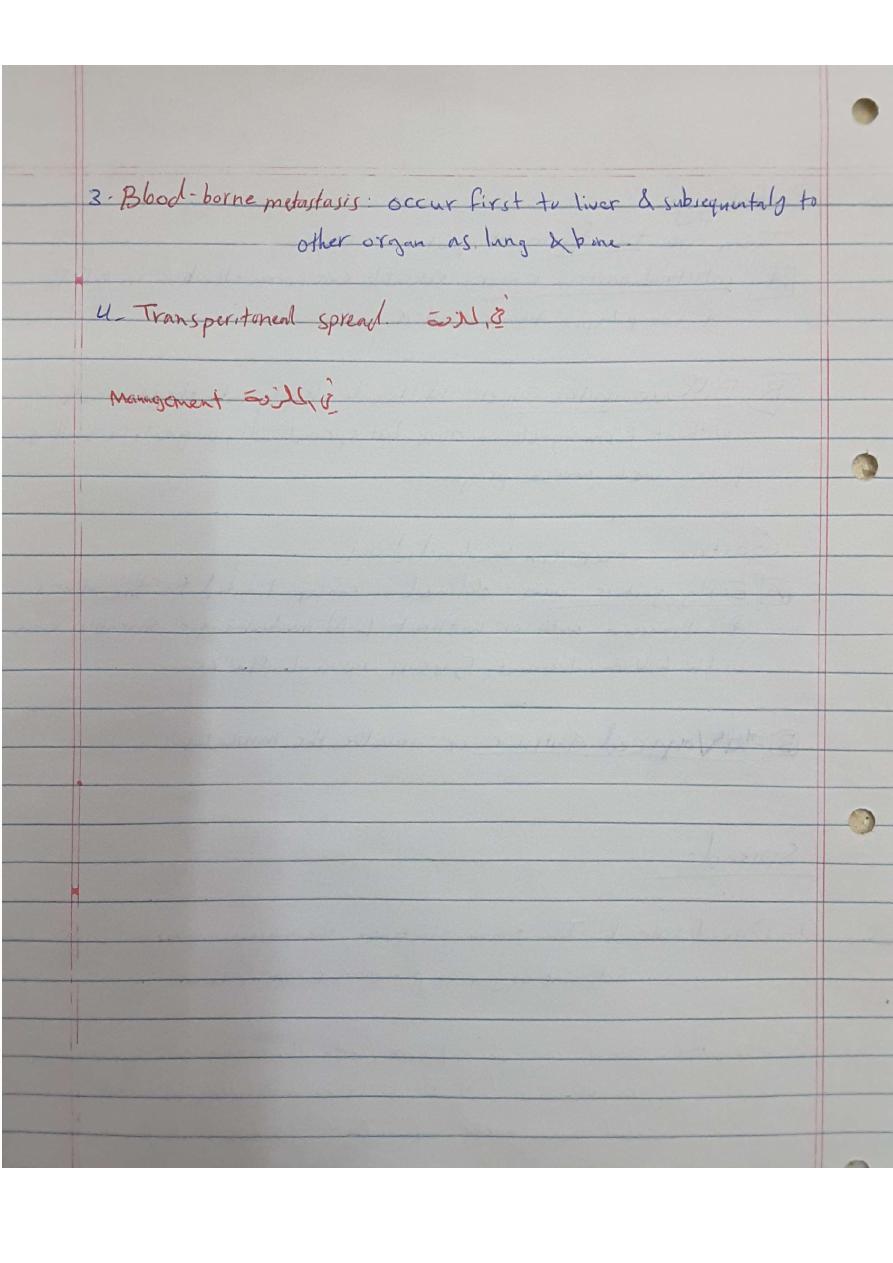 3. Blood-borne metastasis: occur first to liver & subsequentaly to
other organ as lung & bone.
4- Transperitoneal spread. في الملزمة
Management في الملزمة